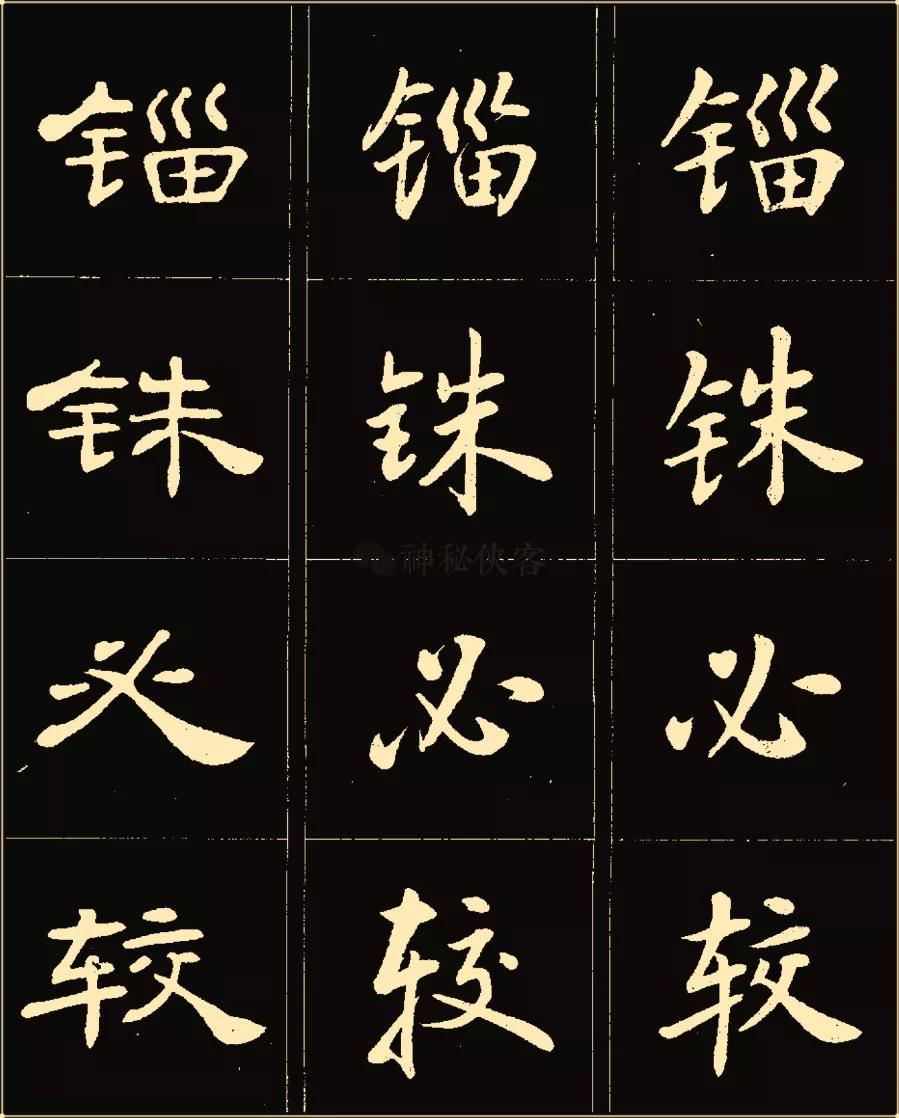 锱 锱 锱
铢 铢 铢
必 必 必
神秘侠客
较 较 较